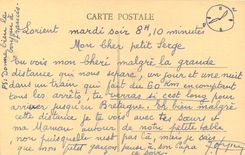 CARTE POSTALE
Lorient mardi soir 8H,10 minutes
Mon cher petit Serge
Tu vois mon chéri malgré la grande
distance qui nous separe, un jour et une nuit
dans un train qui fait du 80 Km en comptant
tous les arrêts, tu verras si c'est long pour
arriver jusqu'en Bretagne. Eh bien malgré
cette distance je te vois avec tes sœurs et
ta Maman autour de notre petite table
non puisqu'elle fait mais je sais
que mon petit garçon pense à son Papa
ce soir.
PS Donne bien le
bonjour à